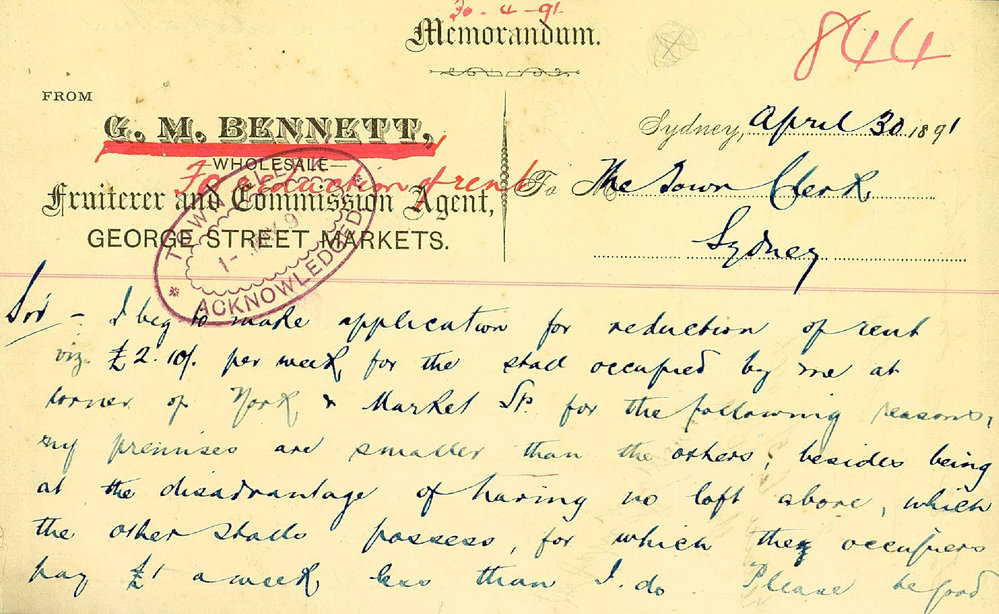 30-4-91
Memorandum.
844
FROM
G. M. BENNETT,
WHOLESALE
For reduction of rent
Fruiterer and Commission Agent,
GEORGE STREET MARKETS.
TOWN CLERK
1- MAY 91
ACKNOWLEDGED
Sydney, April 30 1891
To The Town Clerk
Sydney
Sir - I beg to make application for reduction of rent
viz. £2.10/. per week, for the stall occupied by me at
corner of York & Market Sts. for the following reasons,
my premises are smaller than the others, besides being
at the disadvantage of having no loft above, which
the other stalls possess, for which the occupiers
pay £1 a week less than I do. Please be good